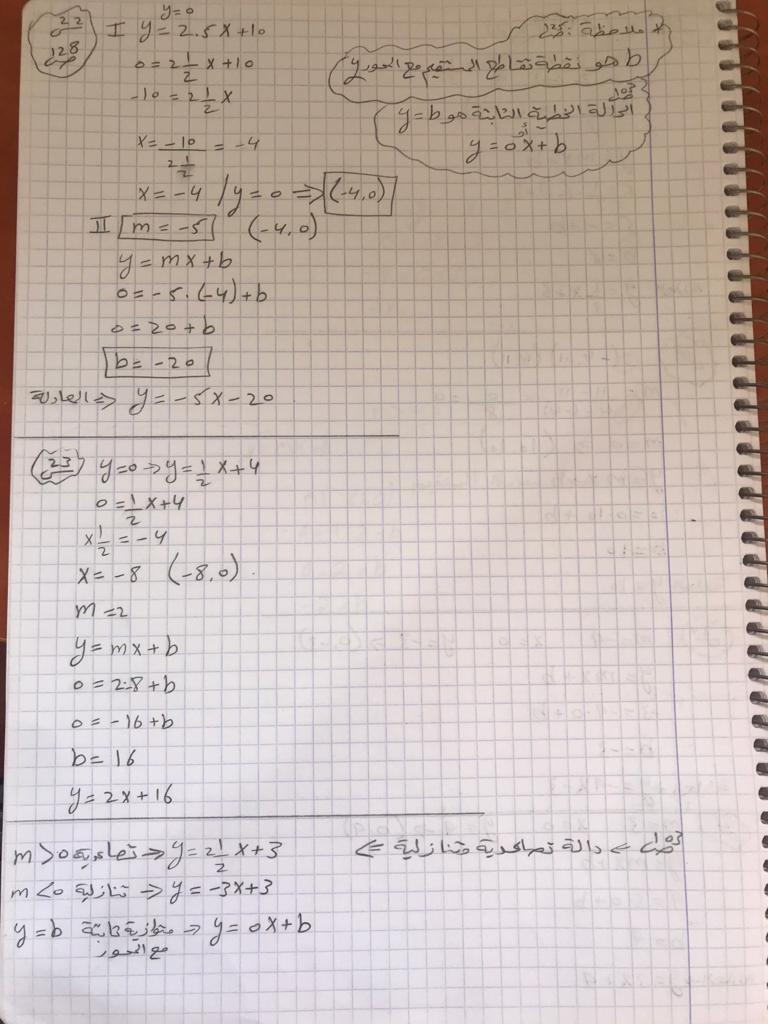 22
ص128
* ملاحظة: ص125
b هو نقطة تقاطع المستقيم مع المحور y
ص103
الدالة الخطية الثابتة هو y=b
أو
y=0x+b
I y=0
y=2.5x+10
0=2 1/2 x+10
-10=2 1/2 x
x= -10/(2 1/2) = -4
x=-4 / y=0 => (-4,0)
II m=-5 (-4,0)
y=mx+b
0=-5.(-4)+b
0=20+b
b=-20
المعادلة => y=-5x-20
23 y=0 -> y=1/2 x+4
0=1/2 x+4
x 1/2 =-4
x=-8 (-8,0).
m=2
y=mx+b
0=2.8+b
0=-16+b
b=16
y=2x+16
ص103 <- دالة تصاعدية تنازلية <=
m>0 تصاعدية => y=2 1/2 x+3
m<0 تنازلية -> y=-3x+3
y=b متوازية ثابتة -> y=0x+b
مع المحور